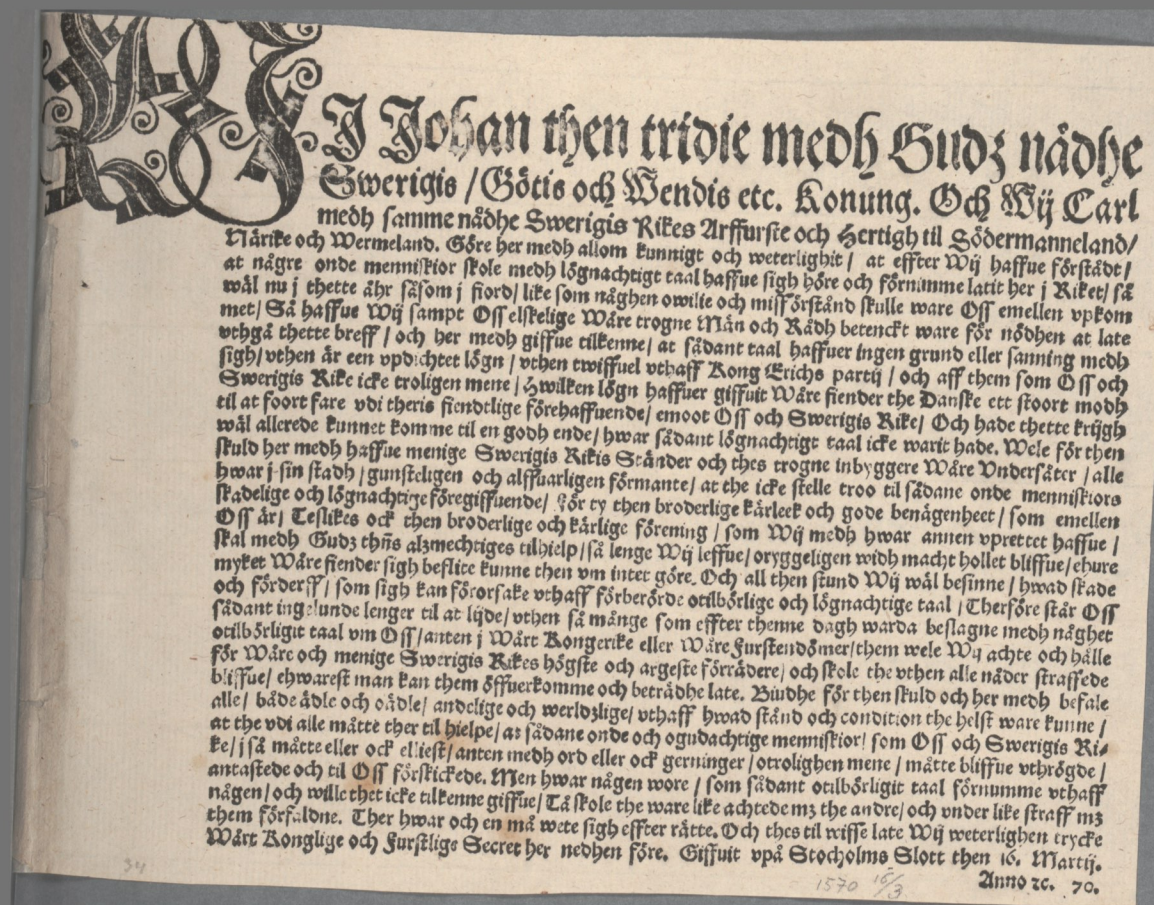 WJJ Johan then tridie medh Gudz nådhe
Swerigis / Götis och Wendis etc. Konung. Och Wij Carl
medh samme nådhe Swerigis Rikes Arffurste och Hertigh til Södermanneland/
Närike och Wermeland. Göre her medh allom kunnigt och weterlighit / at effter Wij haffue förstådt/
at någre onde menniskior skole medh lögnachtigt taal haffue sigh höre och förnimme latit her j Riket/ så
wäl nu j thette åhr såsom j fiord/ like som någhen owilie och missförstånd skulle ware Oss emellen vpkom
met/ Så haffue Wij sampt Oss elskelige Wåre trogne Män och Rådh betenckt ware för nödhen at late
vthgå thette breff / och her medh giffue tilkenne/ at sådant taal haffuer ingen grund eller sanning medh
sigh/ vthen är een vpdichtet lögn / vthen twiffuel vthaff Kong Erichs partij / och aff them som Oss och
Swerigis Rike icke troligen mene / Hwilken lögn haffuer giffuit Wåre fiender the Danske ett stoort modh
til at foort fare vdi theris fiendtlige förehaffuende/ emoot Oss och Swerigis Rike/ Och hade thette krijgh
wäl allerede kunnet komme til en godh ende/ hwar sådant lögnachtigt taal icke warit hade. Wele för then
skuld her medh haffue menige Swerigis Rikis Stånder och thes trogne inbyggere Wåre Vndersåter / alle
hwar j sin stadh / gunsteligen och alffuarligen förmante/ at the icke stelle troo til sådane onde menniskiors
skadelige och lögnachtige föregiffuende/ För ty then broderlige kärleek och gode benägenheet / som emellen
Oss är/ Teslikes ock then broderlige och kärlige förening / som Wij medh hwar annen vprettet haffue /
skal medh Gudz thñs alzmechtiges tilhielp/ så lenge Wij leffue/ oryggeligen widh macht hollet bliffue/ ehure
myket Wåre fiender sigh beflite kunne then vm intet göre. Och all then stund Wij wäl besinne / hwad skade
och förderff / som sigh kan förorsake vthaff förberörde otilbörlige och lögnachtige taal / Therföre står Oss
sådant ingelunde lenger til at lijde/ vthen så månge som effter thenne dagh warda beslagne medh någhet
otilbörligit taal vm Oss/ anten j Wårt Kongerike eller Wåre Furstendömer/ them wele Wij achte och hålle
för Wåre och menige Swerigis Rikes högste och argeste förrädere/ och skole the vthen alle nåder straffede
bliffue/ ehwarest man kan them öffuerkomme och beträdhe late. Biudhe för then skuld och her medh befale
alle / både ädle och oädle/ andelige och werldzlige/ vthaff hwad stånd och condition the helst ware kunne /
at the vdi alle måtte ther til hielpe/ at sådane onde och ogudachtige menniskior/ som Oss och Swerigis Ri-
ke/ j så måtte eller ock elliest/ anten medh ord eller ock gerninger / otrolighen mene / måtte bliffue vthrögde/
antastede och til Oss förskickede. Men hwar någen wore / som sådant otilbörligit taal förnumme vthaff
någen/ och wille thet icke tilkenne giffue/ Tå skole the ware like achtede mz the andre/ och vnder like straff mz
them förfaldne. Ther hwar och en må wete sigh effter rätte. Och thes til wisse late Wij weterlighen trycke
Wårt Konglige och Furstlige Secret her nedhen före. Giffuit vpå Stocholms Slott then 16. Martij.
Anno ꝛc. 70.
1570 16/3
34